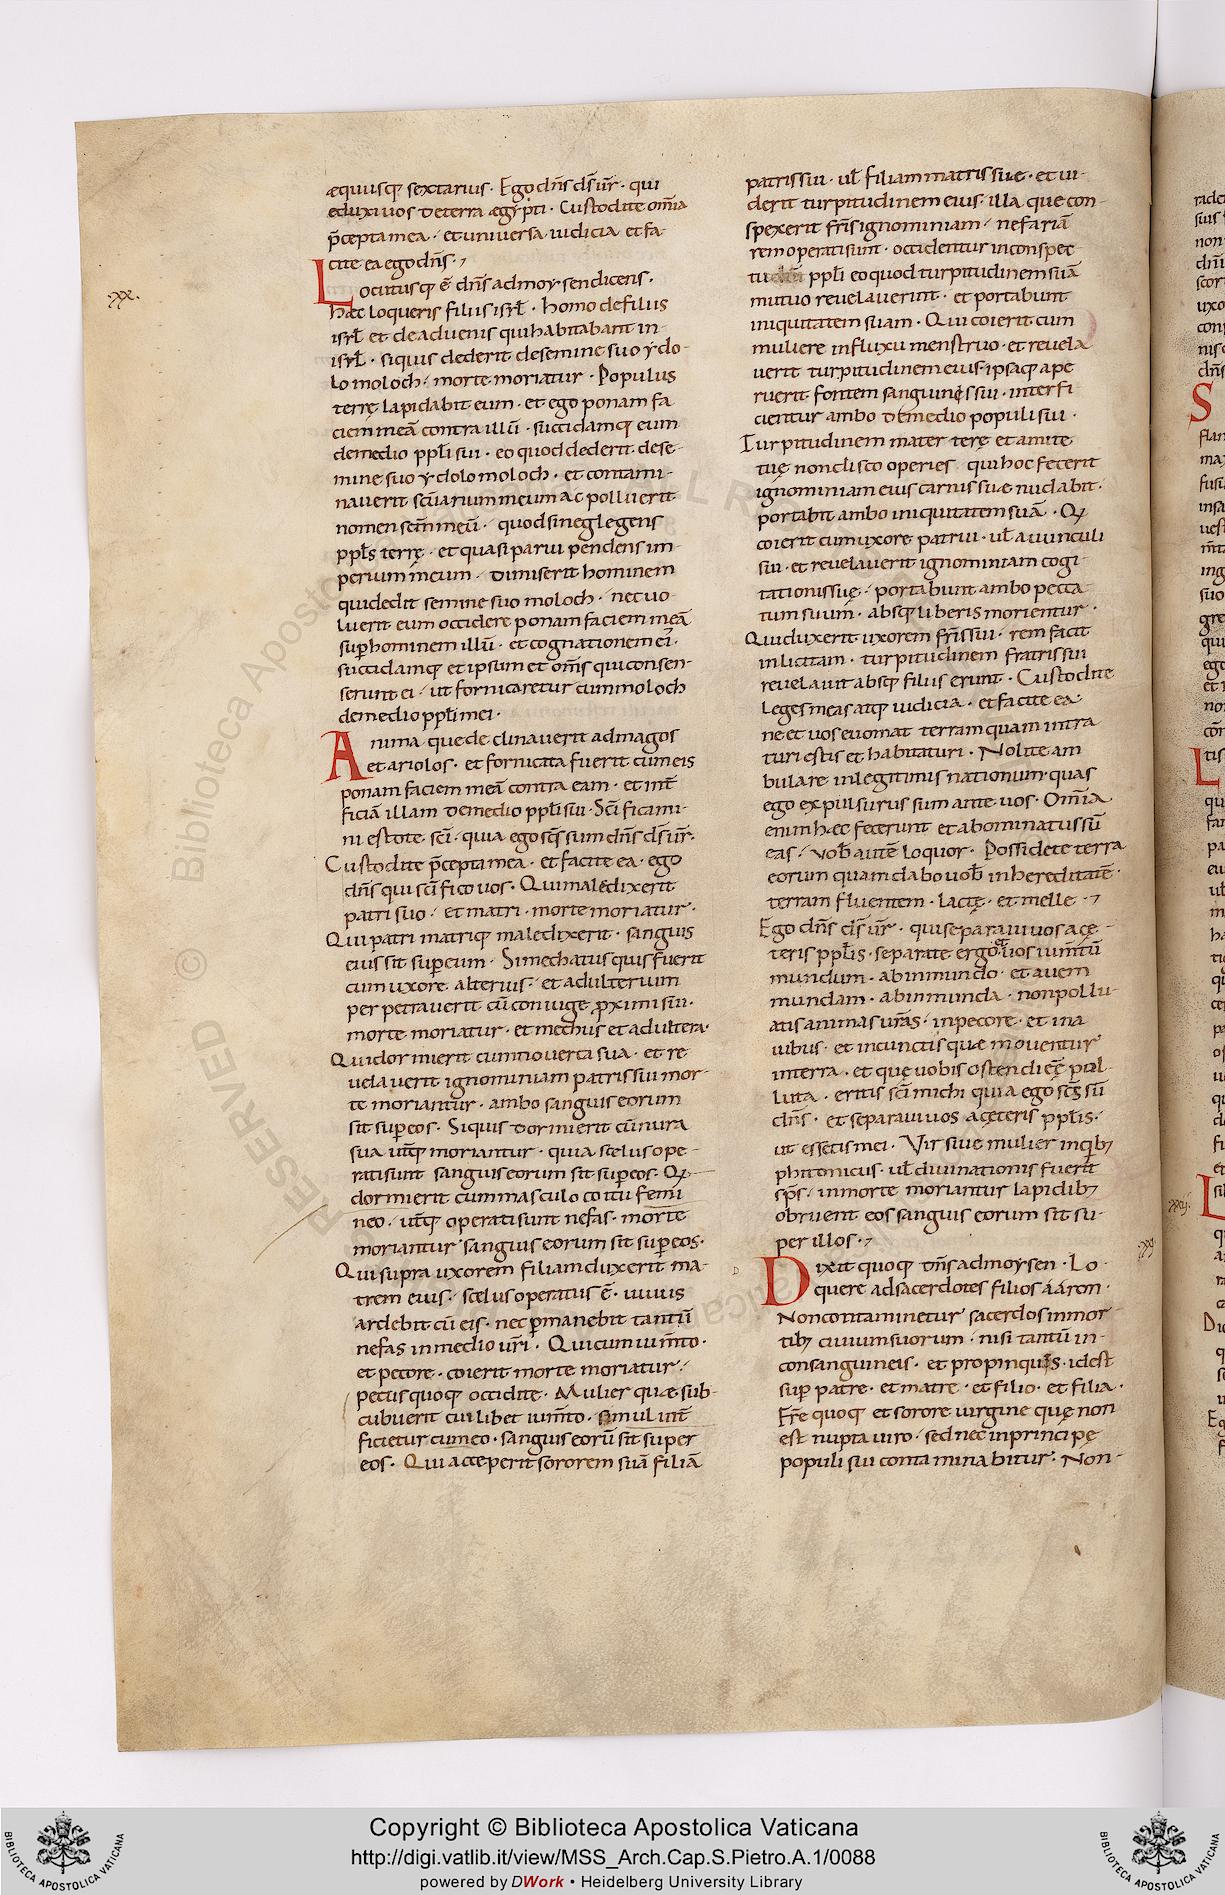 æquusq; sextarius. Ego dñs ds ur̄. qui
eduxi uos deterra ægypti. Custodite om̄ia
p̄cepta mea. et uniuersa iudicia et fa
cite ea ego dñs.
.xx.
Locutusq; ē dñs admoysen dicens.
Hæc loqueris filiis isrł. homo defiliis
isrł et deaduenis quihabitabant in
isrł. siquis dederit desemine suo ydo-
lo moloch. morte moriatur. Populus
terrę lapidabit eum. et ego ponam fa
ciem meā contra illū. succidamq; eum
demedio ppłi sui. eo quod dederit dese-
mine suo ydolo moloch. et contami-
nauerit scūarium meum ac polluerit
nomen scm̄ meū. quod si neglegens
ppłs terrę. et quasi parui pendens im-
perium meum. dimiserit hominem
quidedit semine suo moloch. nec uo-
luerit eum occidere ponam faciem meā
sup hominem illū. et cognationem ei'.
succidamq; et ipsum et om̄s qui consen-
serunt ei. ut fornicaretur cum moloch
demedio ppłi mei.
Anima que declinauerit admagos
et ariolos. et fornicata fuerit cum eis
ponam faciem meā contra eam. et int̄
ficiā illam demedio ppłi sui. Scī ficami-
ni estote scī. quia ego scs̄ sum dñs ds ur̄.
Custodite p̄cepta mea. et facite ea. ego
dñs qui scī fico uos. Qui maledixerit
patri suo. et matri. morte moriatur.
Qui patri matriq; maledixerit. sanguis
eius sit sup eum. Simechatus quis fuerit
cum uxore alterius. et adulterium
per petrauerit cū coniuge proximi sui.
morte moriatur. et mechus et adultera.
Qui dormierit cum nouerca sua. et re
uelauerit ignominiam patris sui mor-
te moriantur. ambo sanguis eorum
sit sup eos. Siquis dormierit cū nura
sua ut̄q; moriantur. quia scelus ope-
rati sunt sanguis eorum sit sup eos. Qi
dormierit cum masculo coitu femi
neo. ut̄q; operati sunt nefas. morte
moriantur sanguis eorum sit sup eos.
Qui supra uxorem filiam duxerit ma-
trem eius. scelus operatus ē. uiuus
ardebit cū eis. nec p manebit tantū
nefas in medio ur̄i. Qui cum ium̄to.
et pecore. coierit morte moriatur.
pecus quoq; occidite. Mulier quæ sub-
cubuerit cui libet ium̄to. simul int̄
ficietur cum eo. sanguis eorū sit super
eos. Qui acceperit sororem suā filiā
patris sui. uł filiam matris suæ. et ui-
derit turpitudinem eius. illa que con-
spexerit fr̄is ignominiam. nefariā
rem operati sunt. occidentur inconspec
tu ppłi eo quod turpitudinem suā
mutuo reuelauerint. et portabunt
iniquitatem suam. Qui coierit cum
muliere in fluxu menstruo. et reuela
uerit turpitudinem eius. ipsaq; ape
ruerit fontem sanguinis sui. interfi
cientur ambo demedio populi sui.
Turpitudinem mater terę et amite
tuę non disco operies. qui hoc fecerit
ignominiam eius carnis suæ nudabit.
portabit ambo iniquitatem suā. Qi
coierit cum uxore patrui. uł auunculi
sui. et reuelauerit ignominiam cogi
tationis suę. portabunt ambo pecca
tum suum. absq; liberis morientur.
Qui duxerit uxorem fr̄is sui. rem facit
inlicitam. turpitudinem fratris sui
reuelauit absq; filiis erunt. Custodite
leges meas atq; iudicia. et facite ea.
ne et uos euomat terram quam intra
turi estis et habitaturi. Nolite am
bulare in legitimis nationum quas
ego expulsurus sum ante uos. Om̄ia
enim hæc fecerunt et abominatus sū
eas. uob̄ autē loquor. Possidete terra
eorum quam dabo uob̄ in hereditatē.
terram fluentem. lacte. et melle.
Ego dñs ds ur̄. qui separaui uos a cę-
teris ppłis. separate ergo et uos ium̄tū
mundum. ab inmundo. et auem
mundam. ab inmunda. non pollu-
atis animas ur̄as. in pecore. et in a
uibus. et in cunctis quæ mouentur
interra. et quę uobis ostendi eē pol-
luta. eritis scī michi quia ego scs̄ sū
dñs. et separaui uos a cęteris ppłis.
ut essetis mei. Vir siue mulier in qib;
phitonicus. uł diuinationis fuerit
sp̄s. in morte moriantur lapidib;
obruent eos sanguis eorum sit su-
per illos.
.xxi.
Dixit quoq; dñs admoysen. Lo-
quere ad sacerdotes filios aaron.
Non contaminetur sacerdos in mor
tib; ciuium suorum. nisi tantū in-
consanguineis. et propinquis. idest
sup patre. et matre. et filio. et filia.
Fr̄e quoq; et sorore uirgine quę non
est nupta uiro. sed nec in principe
populi sui contaminabitur. Non-
Copyright © Biblioteca Apostolica Vaticana
http://digi.vatlib.it/view/MSS_Arch.Cap.S.Pietro.A.1/0088
powered by DWork • Heidelberg University Library